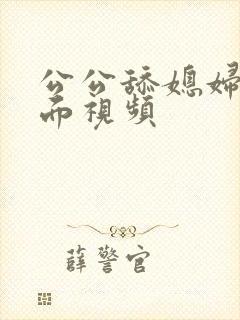 公公舔媳婦
而視頻
薛警官